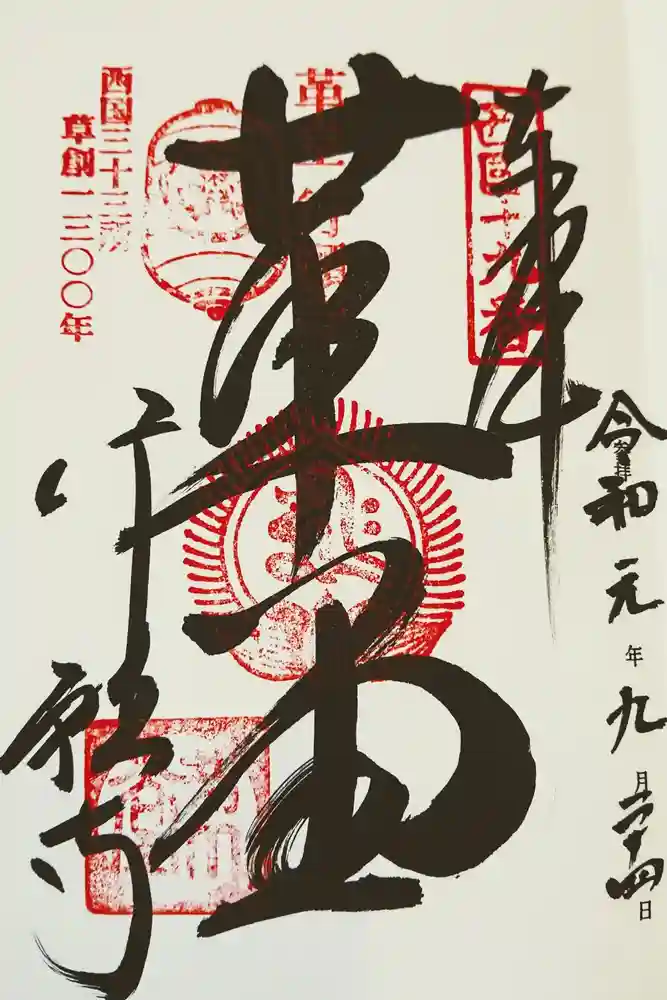 令和元年九月二十四日
奉拝
西国十九番
革堂
行願寺
西国三十三所
草創一三〇〇年